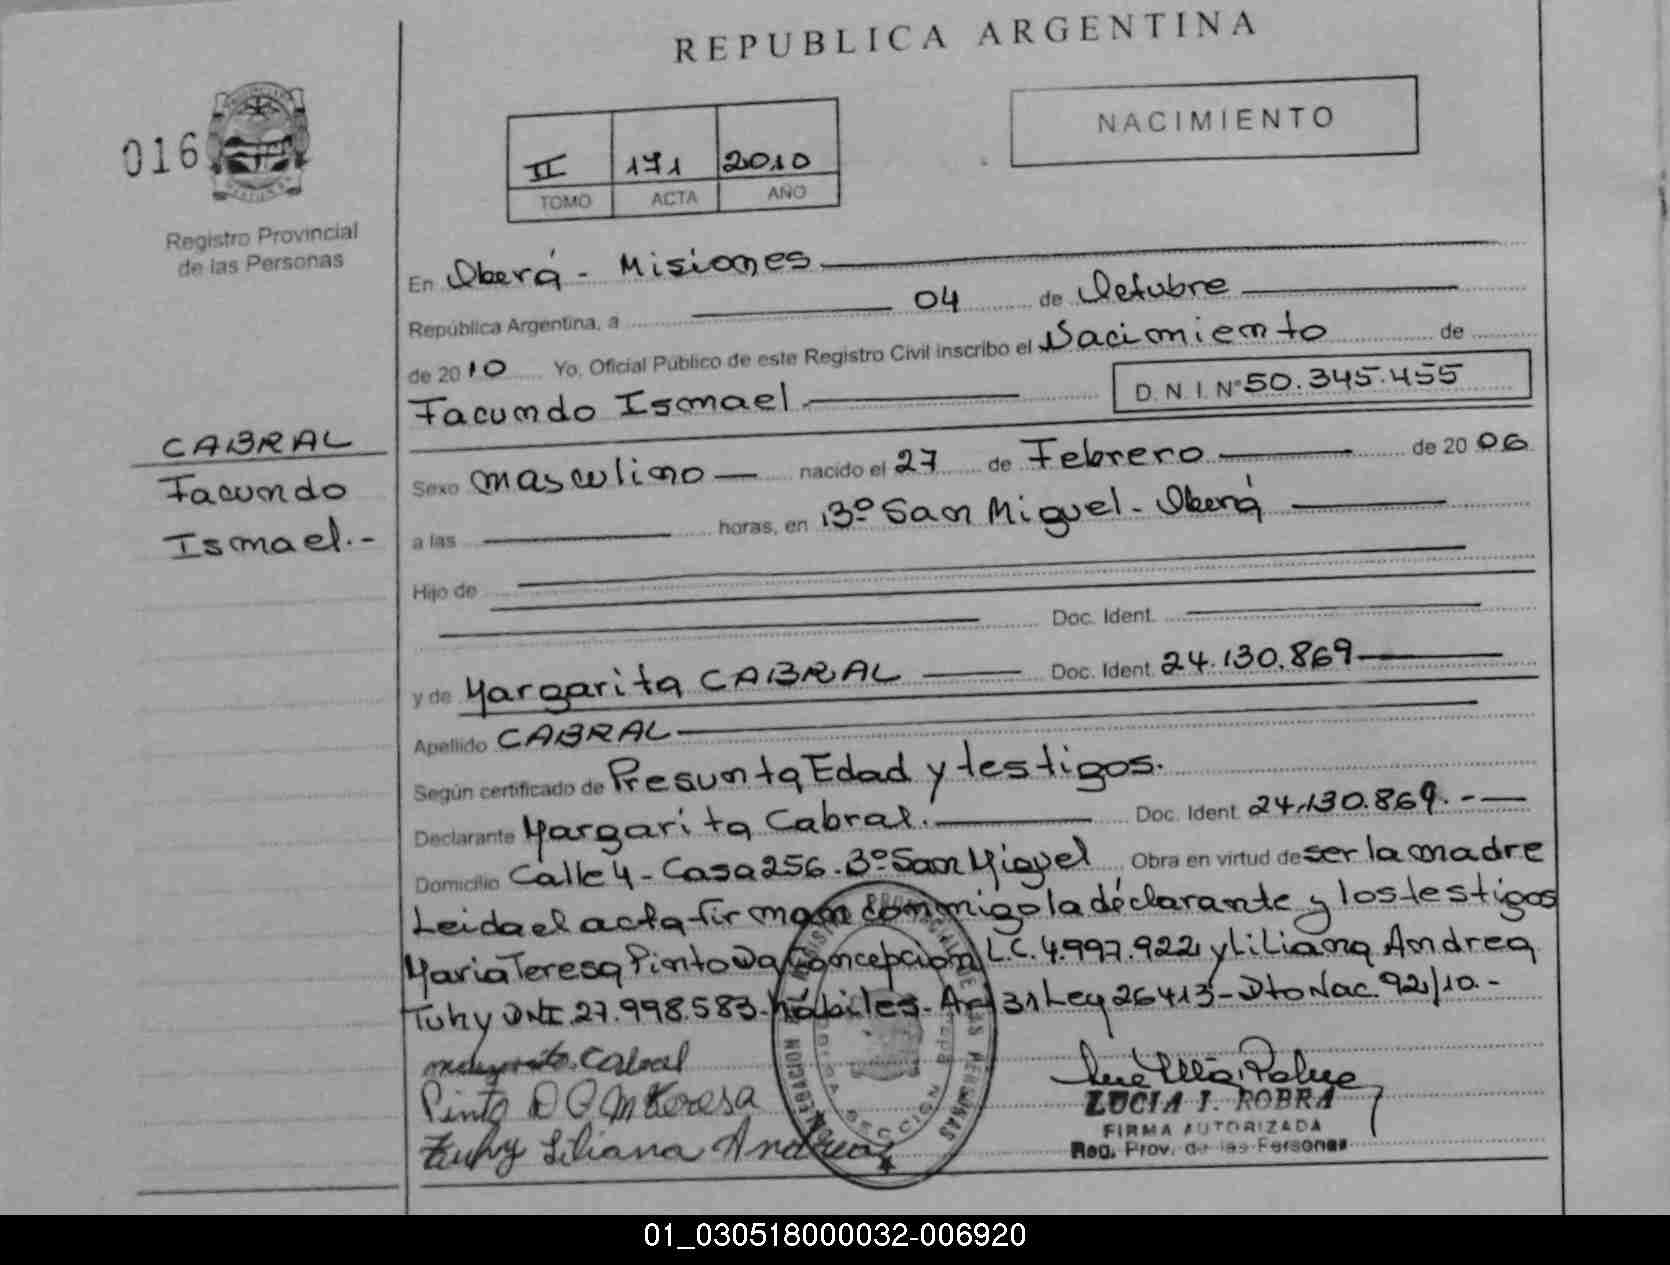 REPUBLICA ARGENTINA
016
NACIMIENTO
II 171 2010
TOMO ACTA AÑO
Registro Provincial
de las Personas
En Oberá - Misiones
República Argentina, a 04 de Octubre
de 2010 Yo, Oficial Público de este Registro Civil inscribo el Nacimiento de
Facundo Ismael D.N.I. Nº 50.345.455
CABRAL
Facundo
Ismael.-
Sexo masculino nacido el 27 de Febrero de 2006
a las horas, en Bº San Miguel - Oberá
Hijo de
Doc. Ident.
y de Margarita CABRAL Doc. Ident. 24.130.869
Apellido CABRAL
Según certificado de Presunta Edad y testigos.
Declarante Margarita Cabral. Doc. Ident. 24.130.869.-
Domicilio Calle 4 - Casa 256 - Bº San Miguel Obra en virtud de ser la madre
Leida el acta firman conmigo la declarante y los testigos
Maria Teresa Pinto Da Concepcion L.C. 4.997.922 y Liliana Andrea
Tuhy DNI. 27.998.583 - hábiles - Art 31 Ley 26413 - Dto Nac. 92/10.-
Margarita Cabral
Pinto D C M Teresa
Tuhy Liliana Andrea
LUCIA I. ROBRA
FIRMA AUTORIZADA
Reg. Prov. de las Personas
01_030518000032-006920